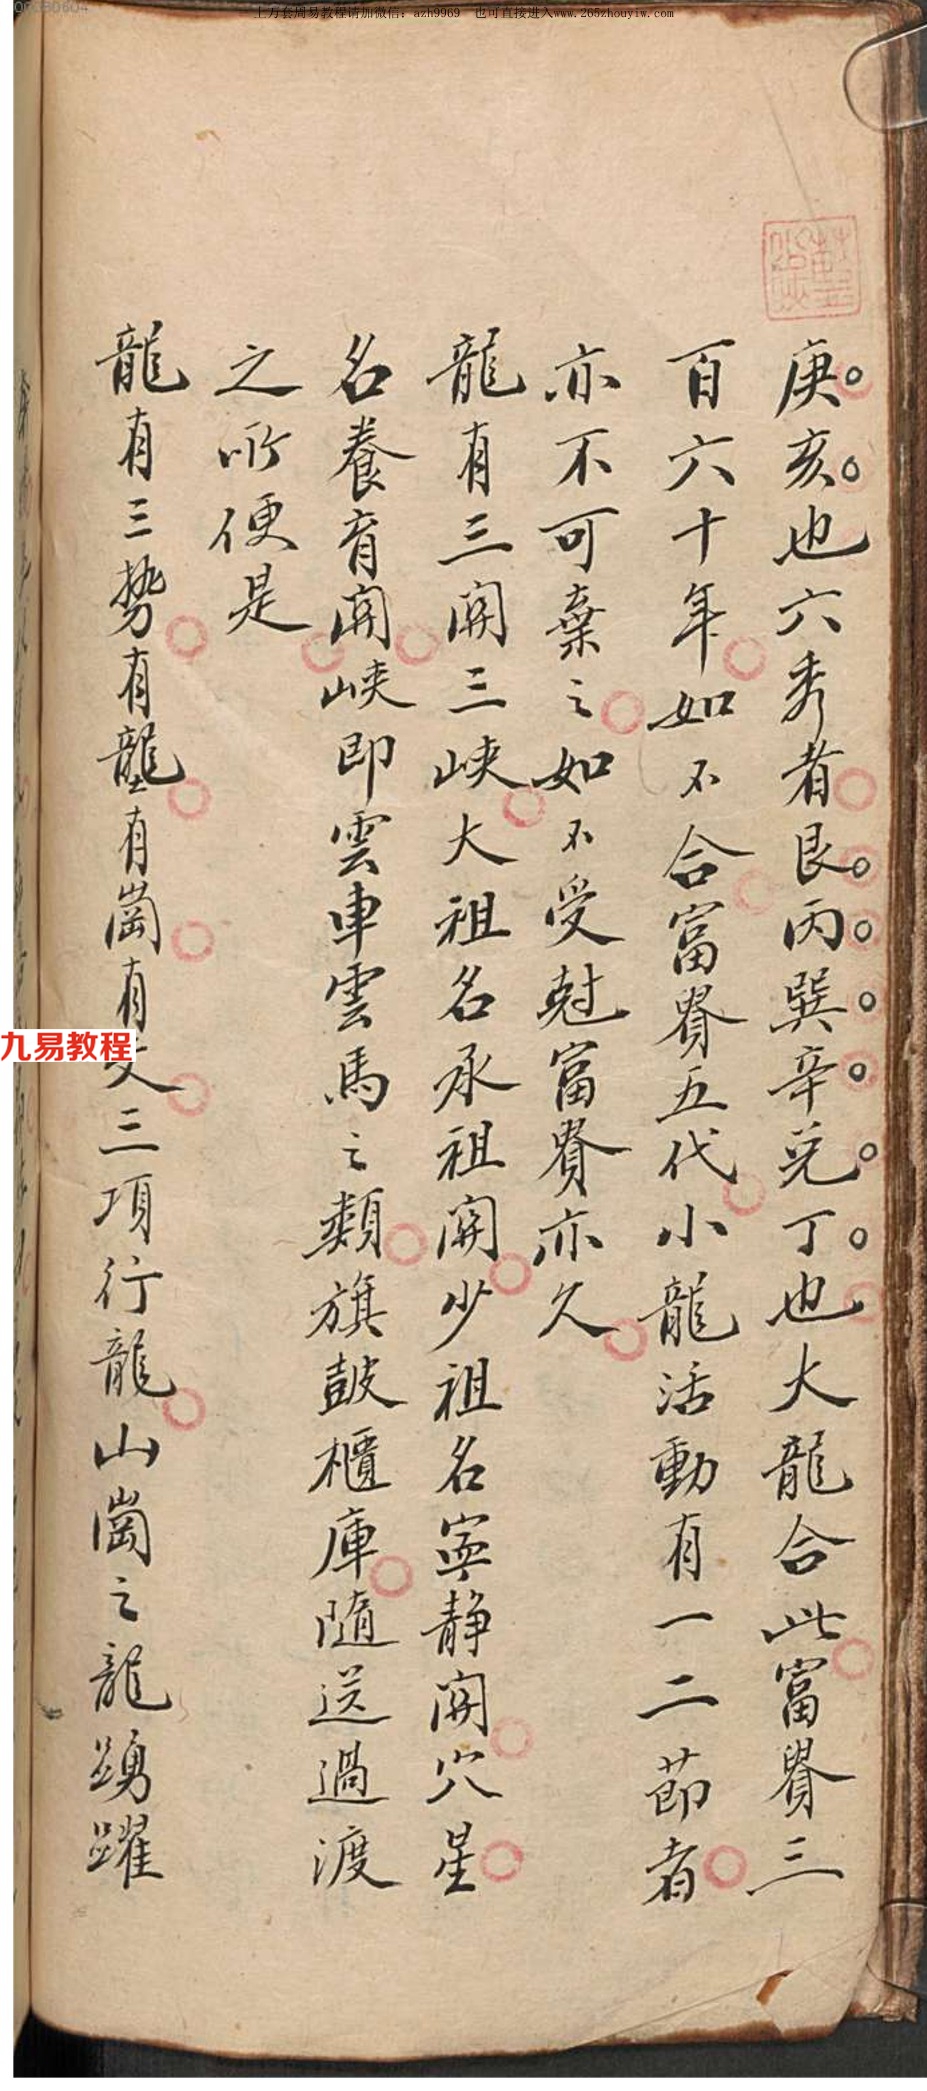 00030604
上方套周易教程请加微信：azh9969　也可直接进入www.265zhouyiw.com
庚亥也六秀者艮丙巽辛兌丁也大龍合此富貴三
百六十年如不合富貴五代小龍活動有一二節者
亦不可棄之如不受尅富貴亦久
龍有三関三峽大祖名承祖関少祖名寧靜関穴星
名養育関峽即雲車雲馬之類旗皷櫃庫隨送過渡
之所便是
龍有三勢有壠有崗有支三項行龍山崗之龍踴躍
九易教程